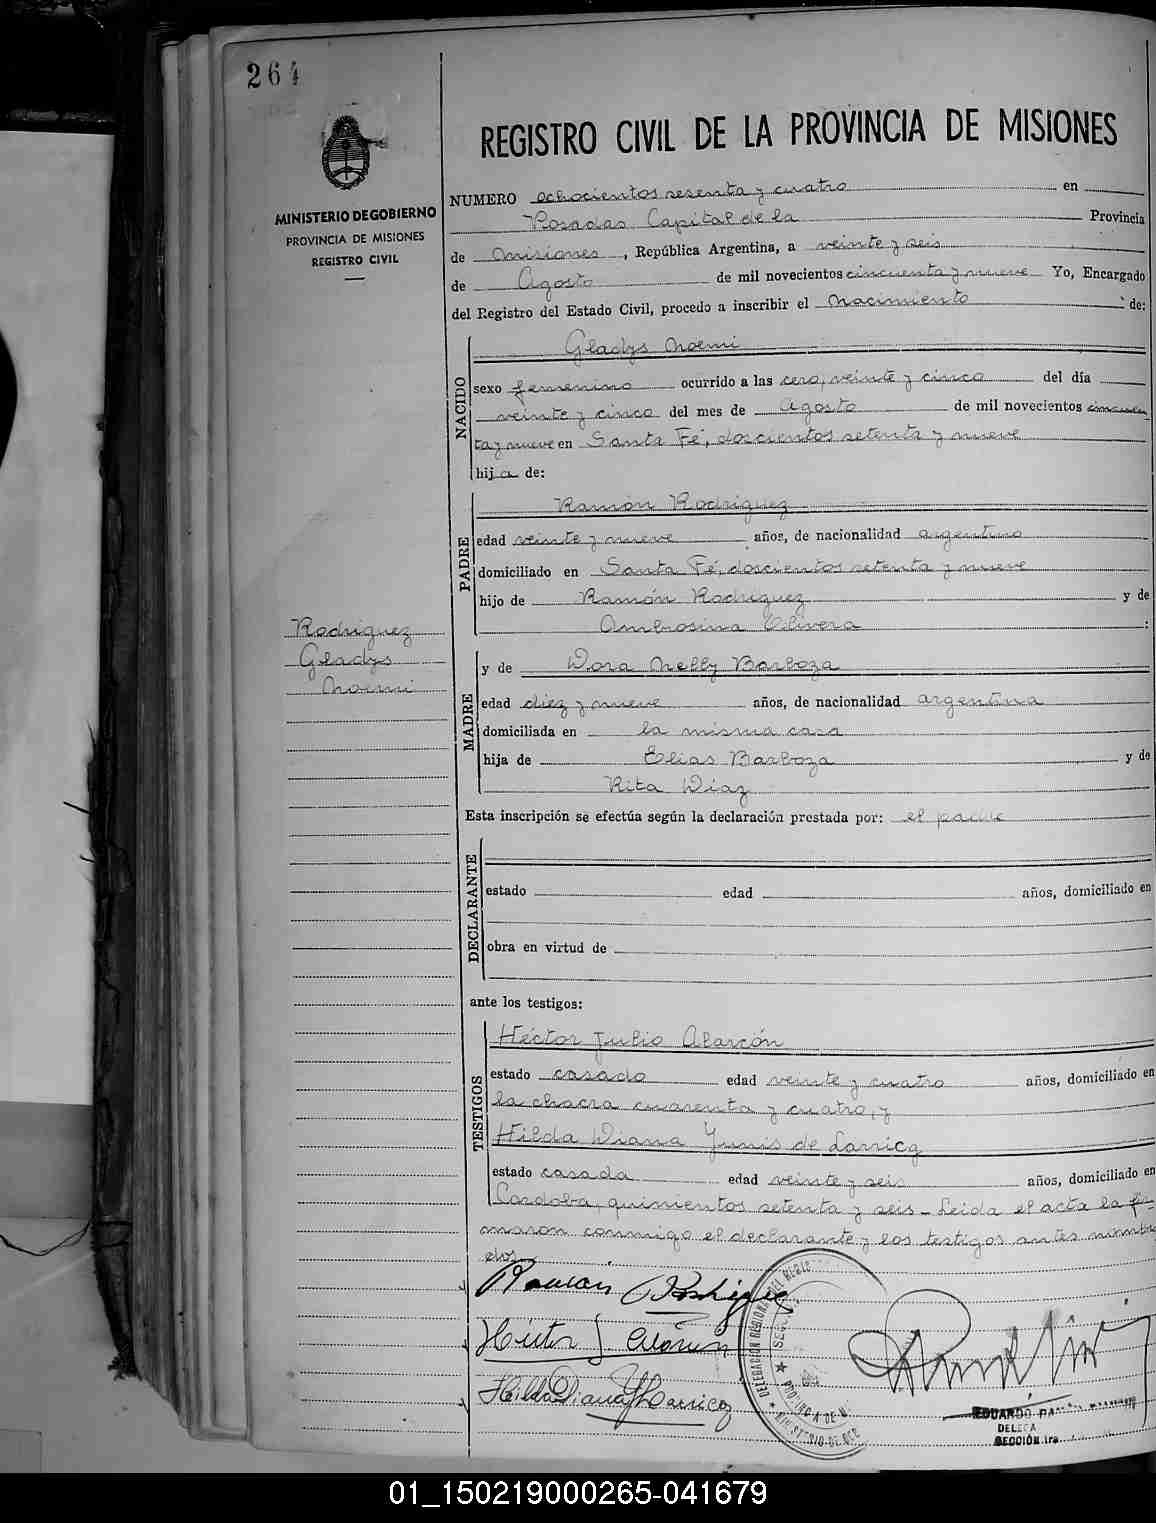 264
MINISTERIO DE GOBIERNO
PROVINCIA DE MISIONES
REGISTRO CIVIL
REGISTRO CIVIL DE LA PROVINCIA DE MISIONES
NUMERO ochocientos sesenta y cuatro en
Posadas Capital de la Provincia
de Misiones, República Argentina, a veinte y seis
de Agosto de mil novecientos cincuenta y nueve Yo, Encargado
del Registro del Estado Civil, procedo a inscribir el nacimiento de:
NACIDO
Gladys Noemi
sexo femenino ocurrido a las cero, veinte y cinco del día
veinte y cinco del mes de Agosto de mil novecientos cincuen
ta y nueve en Santa Fé, doscientos setenta y nueve
hija de:
PADRE
Ramón Rodriguez
edad veinte y nueve años, de nacionalidad argentino
domiciliado en Santa Fé, doscientos setenta y nueve
hijo de Ramón Rodriguez y de
Ambrosina Olivera :
Rodriguez
Gladys
Noemi
MADRE
y de Dora Nelly Barboza
edad diez y nueve años, de nacionalidad argentina
domiciliada en la misma casa
hija de Elias Barboza y de
Rita Diaz
Esta inscripción se efectúa según la declaración prestada por: el padre
DECLARANTE
estado edad años, domiciliado en
obra en virtud de
ante los testigos:
TESTIGOS
Héctor Julio Alarcón
estado casado edad veinte y cuatro años, domiciliado en
la chacra cuarenta y cuatro, y
Hilda Diana Yunis de Larricq
estado casada edad veinte y seis años, domiciliado en
Cordoba, quinientos setenta y seis - Leida el acta la fir-
maron conmigo el declarante y los testigos antes nombra
dos
Ramón Rodriguez
Héctor J. Alarcón
Hilda Diana Y. Larricq
DELEGACION REGIONAL DEL REGIS
PROVINCIA DE M
MINISTERIO DE GOB
EDUARDO
SECCIÓN 1ra.
01_150219000265-041679